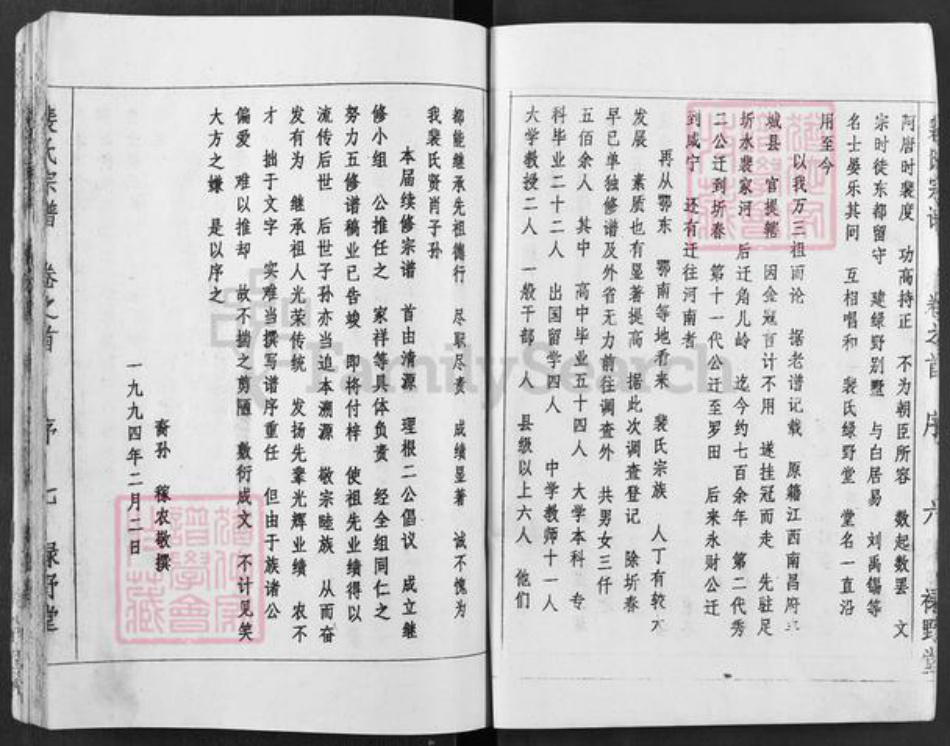 裴氏宗谱 卷之首 序 六 绿野堂
阿唐时裴度 功高持正 不为朝臣所容 数起数罢 文
宗时徒东都留守 建绿野别墅 与白居易 刘禹锡等
名士晏乐其间 互相唱和 裴氏绿野堂 堂名一直沿
用至今
以我万三祖而论 据老谱记载 原籍江西南昌府
城县 官提辖 因金冠百计不用 遂挂冠而走 先驻足
圻水裴家河 后迁角儿岭 迄今约七百余年 第二代秀
二公迁到圻春 第十一代公迁至罗田 后来永财公迁
到咸宁 还有迁往河南者
再从鄂东 鄂南等地看来 裴氏宗族 人丁有较大
发展 素质也有显著提高 据此次调查登记 除圻春
早已单独修谱及外省无力前往调查外 共男女三仟
五佰余人 其中 高中毕业五十四人 大学本科 专
科毕业二十二人 出国留学四人 中学教师十一人
大学教授二人 一般干部 人 县级以上六人 他们
都能继承先祖德行 尽职尽责 成绩显著 诚不愧为
我裴氏贤肖子孙
本届续修宗谱 首由清源 理根二公倡议 成立继
修小组 公推任之 家祥等具体负责 经全组同仁之
努力五修谱稿业已告竣 即将付梓 使祖先业绩得以
流传后世 后世子孙亦当追本溯源 敬宗睦族 从而奋
发有为 继承祖人光荣传统 发扬先辈光辉业绩 农不
才 拙于文字 实难当撰写谱序重任 但由于族诸公
偏爱 难以推却 故不拙之剪陋 敷衍成文 不计见笑
大方之嫌 是以序之
裔孙 稼农敬撰
一九九四年二月二日
裴氏宗谱 卷之首 序 七 绿野堂
FamilySearch